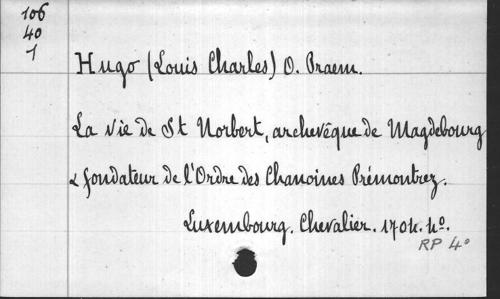 106
40
1
Hugo (Louis Charles) O. Praem.
La Vie de St Norbert, archevêque de Magdebourg
& fondateur de l'Ordre des Chanoines Prémontrez.
Luxembourg. Chevalier. 1704. 4º.
RP 4º